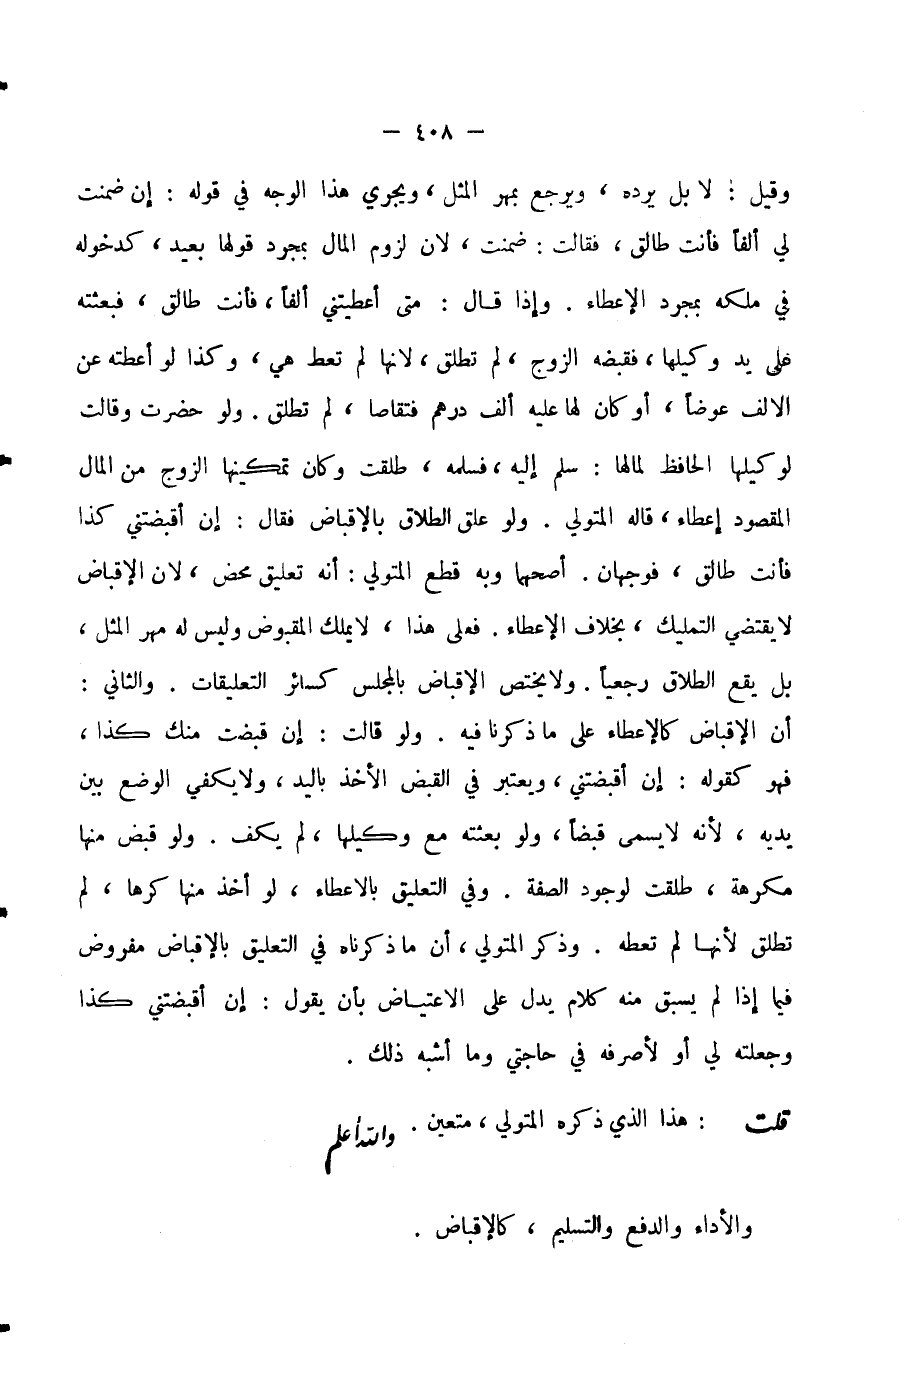 — ٤٠٨ —
وقيل : لا بل يرده ، ويرجع بمهر المثل ، ويجري هذا الوجه في قوله : إن ضمنت
لي ألفاً فأنت طالق ، فقالت : ضمنت ، لان لزوم المال بمجرد قولها بعيد ، كدخوله
في ملكه بمجرد الإعطاء . وإذا قال : متى أعطيتني ألفاً ، فأنت طالق ، فبعثته
على يد وكيلها ، فقبضه الزوج ، لم تطلق ، لانها لم تعط هي ، وكذا لو أعطته عن
الالف عوضاً ، أو كان لها عليه ألف درهم فتقاصا ، لم تطلق . ولو حضرت وقالت
لوكيلها الحافظ لمالها : سلم إليه ، فسلمه ، طلقت وكان تمكينها الزوج من المال
المقصود إعطاء ، قاله المتولي . ولو علق الطلاق بالإقباض فقال : إن أقبضتني كذا
فأنت طالق ، فوجهان . أصحها وبه قطع المتولي : أنه تعليق محض ، لان الإقباض
لا يقتضي التمليك ، بخلاف الإعطاء . فعلى هذا ، لا يملك المقبوض وليس له مهر المثل ،
بل يقع الطلاق رجعياً . ولا يختص الإقباض بالمجلس كسائر التعليقات . والثاني :
أن الإقباض كالإعطاء على ما ذكرنا فيه . ولو قالت : إن قبضت منك كذا ،
فهو كقوله : إن أقبضتني ، ويعتبر في القبض الأخذ باليد ، ولا يكفي الوضع بين
يديه ، لأنه لا يسمى قبضاً ، ولو بعثته مع وكيلها ، لم يكف . ولو قبض منها
مكرهة ، طلقت لوجود الصفة . وفي التعليق بالاعطاء ، لو أخذ منها كرها ، لم
تطلق لأنها لم تعطه . وذكر المتولي ، أن ما ذكرناه في التعليق بالإقباض مفروض
فيما إذا لم يسبق منه كلام يدل على الاعتياض بأن يقول : إن أقبضتني كذا
وجعلته لي أو لأصرفه في حاجتي وما أشبه ذلك .
قلت : هذا الذي ذكره المتولي ، متعين . والله أعلم
والأداء والدفع والتسليم ، كالإقباض .